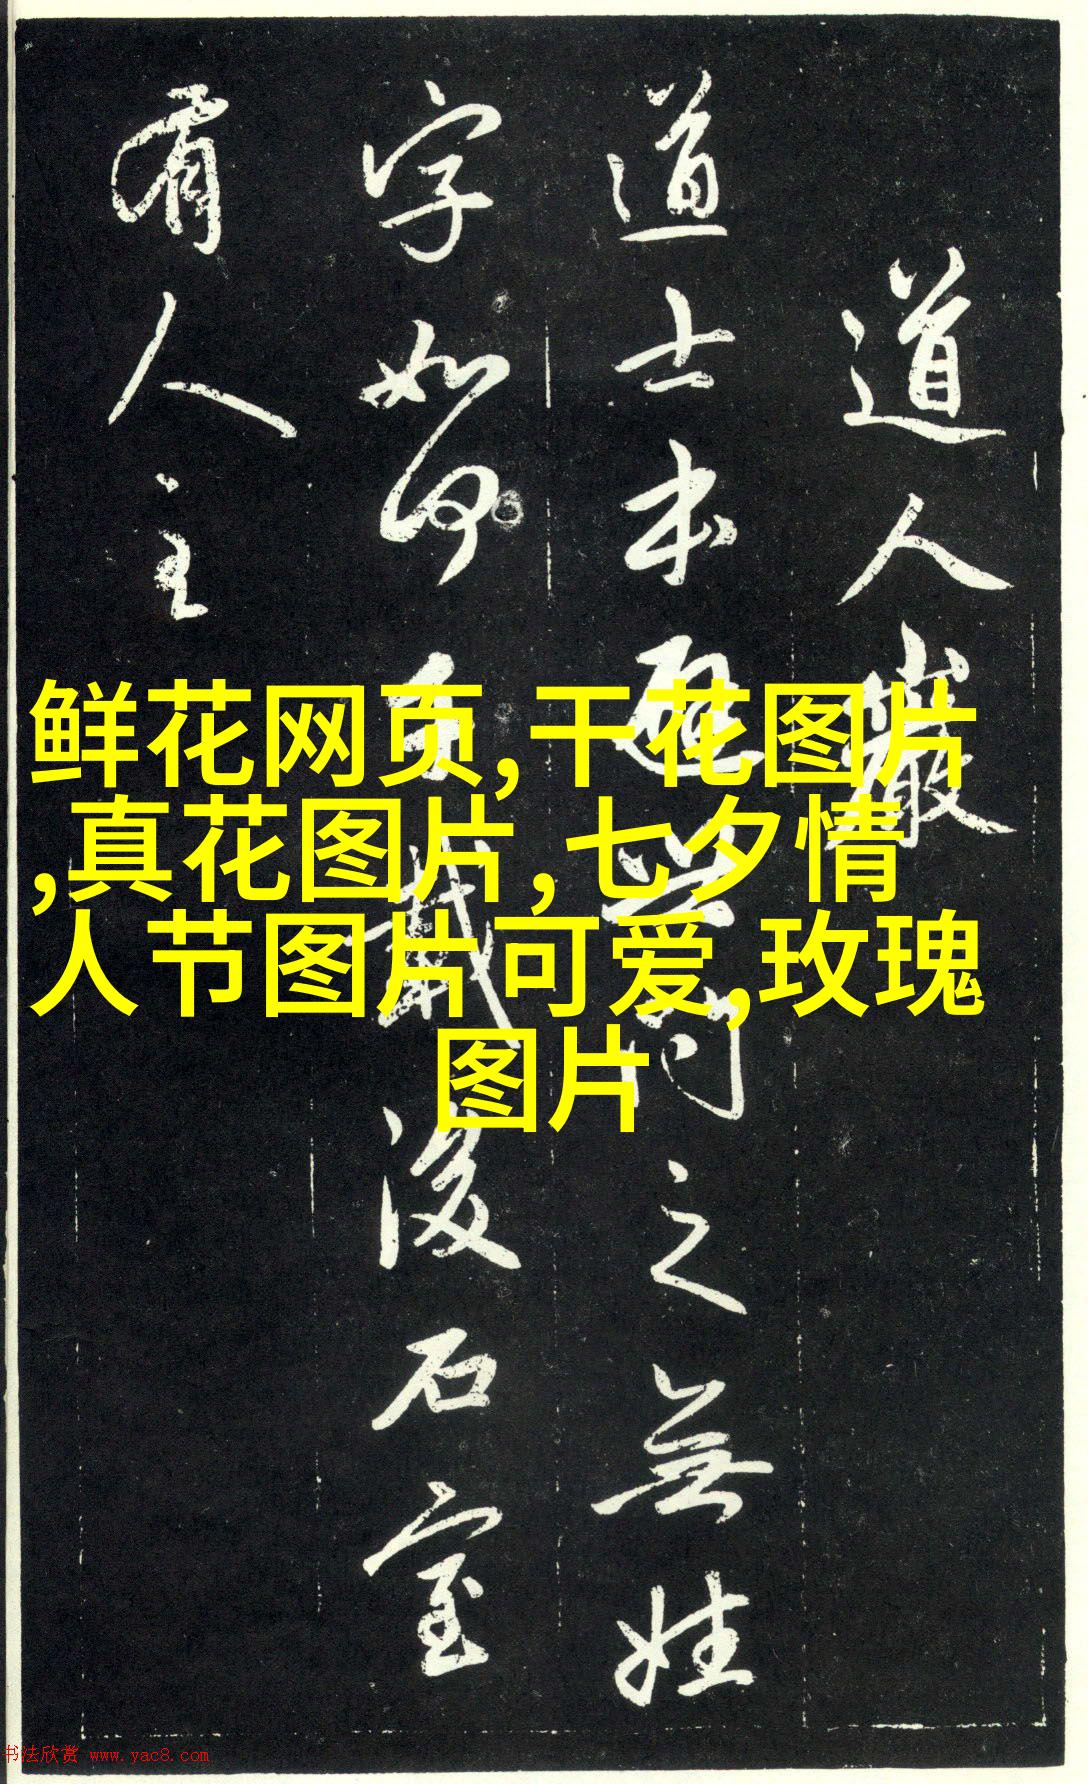 道人巖
道士本避世問之無姓
字如何千載後石室
有人主
鲜花网页,干花图片
,真花图片,七夕情
人节图片可爱,玫瑰
图片
书法欣赏 www.yac8.com